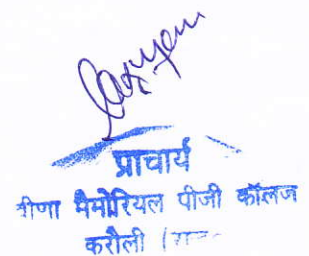 प्राचार्य
वीणा मैमोरियल पीजी कॉलेज
करौली (राज